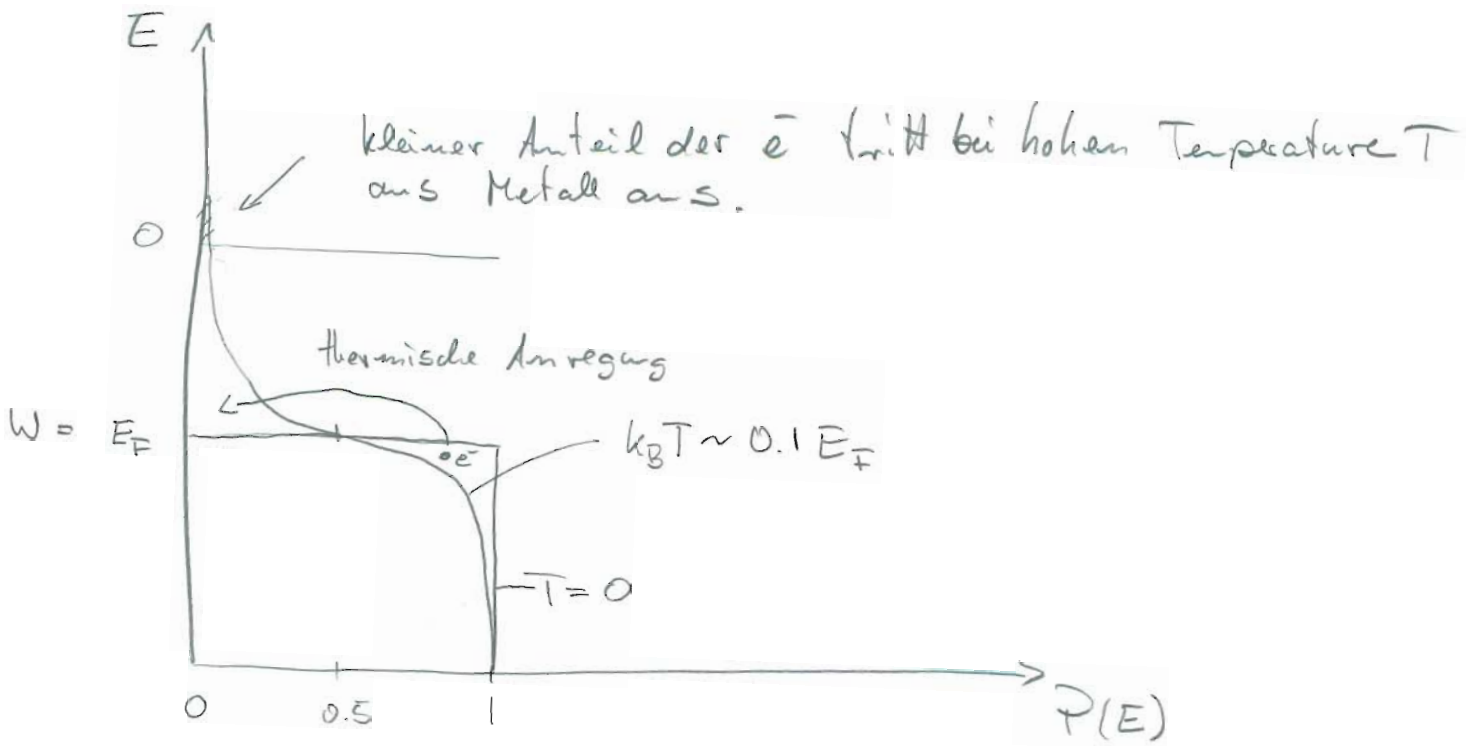 E
kleiner Anteil der e⁻ tritt bei hohen Temperature T
aus Metall aus.
0
thermische Anregung
W = E_F
e⁻
k_B T ~ 0.1 E_F
T = 0
0 0.5 1
P(E)